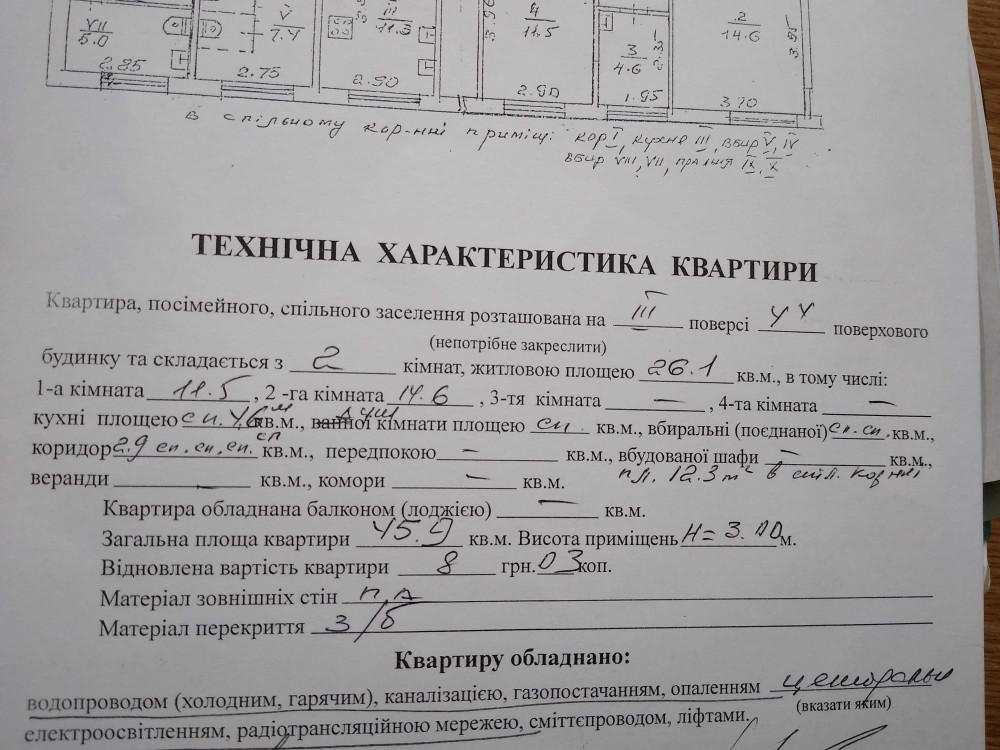 VII V III 4 2
5.0 7.4 11.3 11.5 3 14.6
4.6
2.85 2.75 2.90 2.90 1.95 3.70
В спільному кор-нні приміщ: кор I, кухне III, вбир V, IV
вбир VIII, VII, пральня IX, X
ТЕХНІЧНА ХАРАКТЕРИСТИКА КВАРТИРИ
Квартира, посімейного, спільного заселення розташована на III поверсі 4 х поверхового
(непотрібне закреслити)
будинку та складається з 2 кімнат, житловою площею 26.1 кв.м., в тому числі:
1-а кімната 11.5, 2 -га кімната 14.6, 3-тя кімната —, 4-та кімната —
кухні площею сп. 4,6 кв.м., ванної душ кімнати площею сп. кв.м., вбиральні (поєднаної) сп. сп. кв.м.,
коридор 2.9 сп. сп. сп. сп кв.м., передпокою — кв.м., вбудованої шафи — кв.м.,
пл. 12.3 м² в спіл. кор-нні
веранди — кв.м., комори — кв.м.
Квартира обладнана балконом (лоджією) — кв.м.
Загальна площа квартири 45.9 кв.м. Висота приміщень H= 3.00 м.
Відновлена вартість квартири 8 грн. 03 коп.
Матеріал зовнішніх стін
Матеріал перекриття З/б
Квартиру обладнано:
водопроводом (холодним, гарячим), каналізацією, газопостачанням, опаленням центральн
(вказати яким)
електроосвітленням, радіотрансляційною мережею, сміттєпроводом, ліфтами.